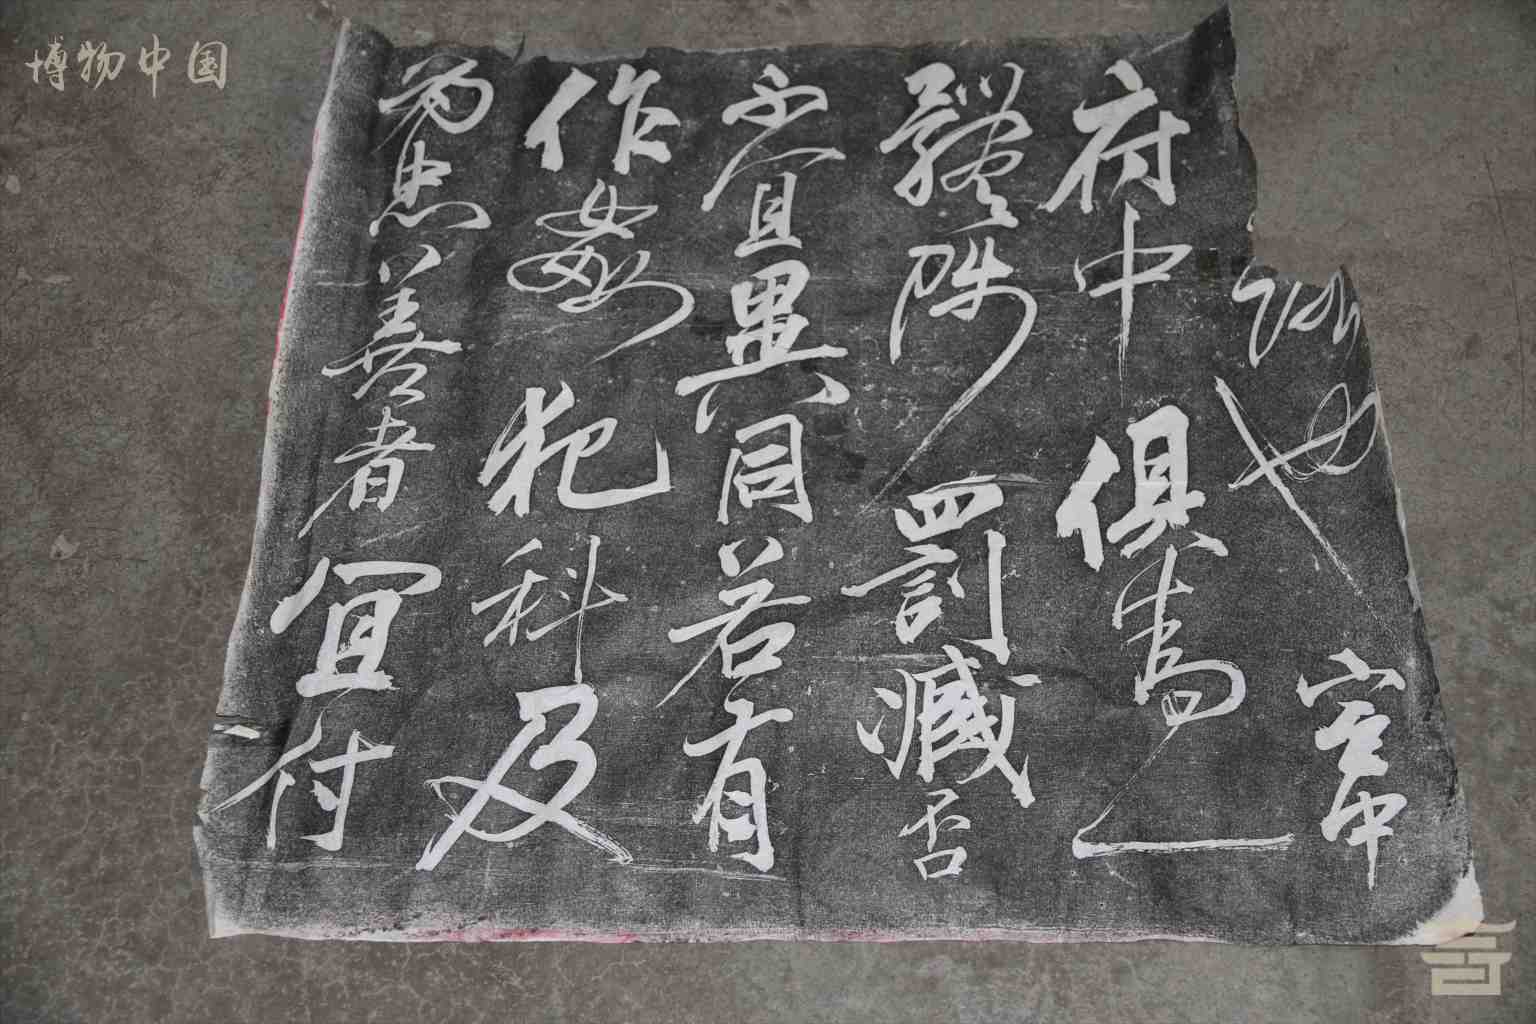 博物中国
也宮中
府中俱為一
體陟罰臧否
不宜異同若有
作姦犯科及
為忠善者宜付